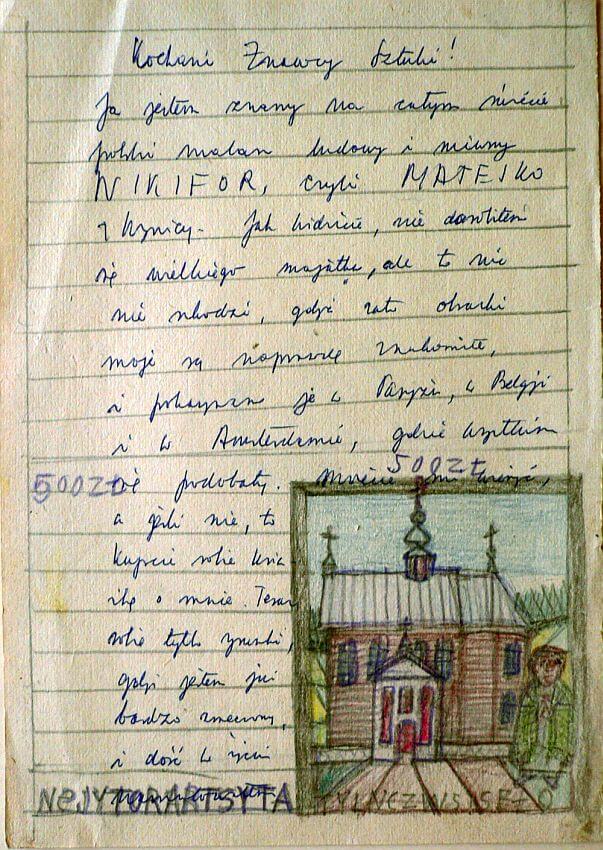 Kochani Znawcy Sztuki!
Ja jestem znany na całym świecie
polski malarz ludowy i mówmy
NIKIFOR, czyli MATEJKO
z Krynicy. Jak widzicie, nie dorobiłem
się wielkiego majątku, ale to nic
nie szkodzi, gdyż zato obrazki
moje są naprawdę znakomite,
i pokazywano je w Paryżu, w Belgji
i w Amsterdamie, gdzie wszystkim
500ZŁ 500ZŁ
się podobały. Możecie mi wierzyć,
a jeśli nie, to
kupcie sobie ksią
żkę o mnie. Teraz
robię tylko rysunki,
gdyż jestem już
bardzo zmęczony,
i dość w życiu
NeJYTORARTSYTA